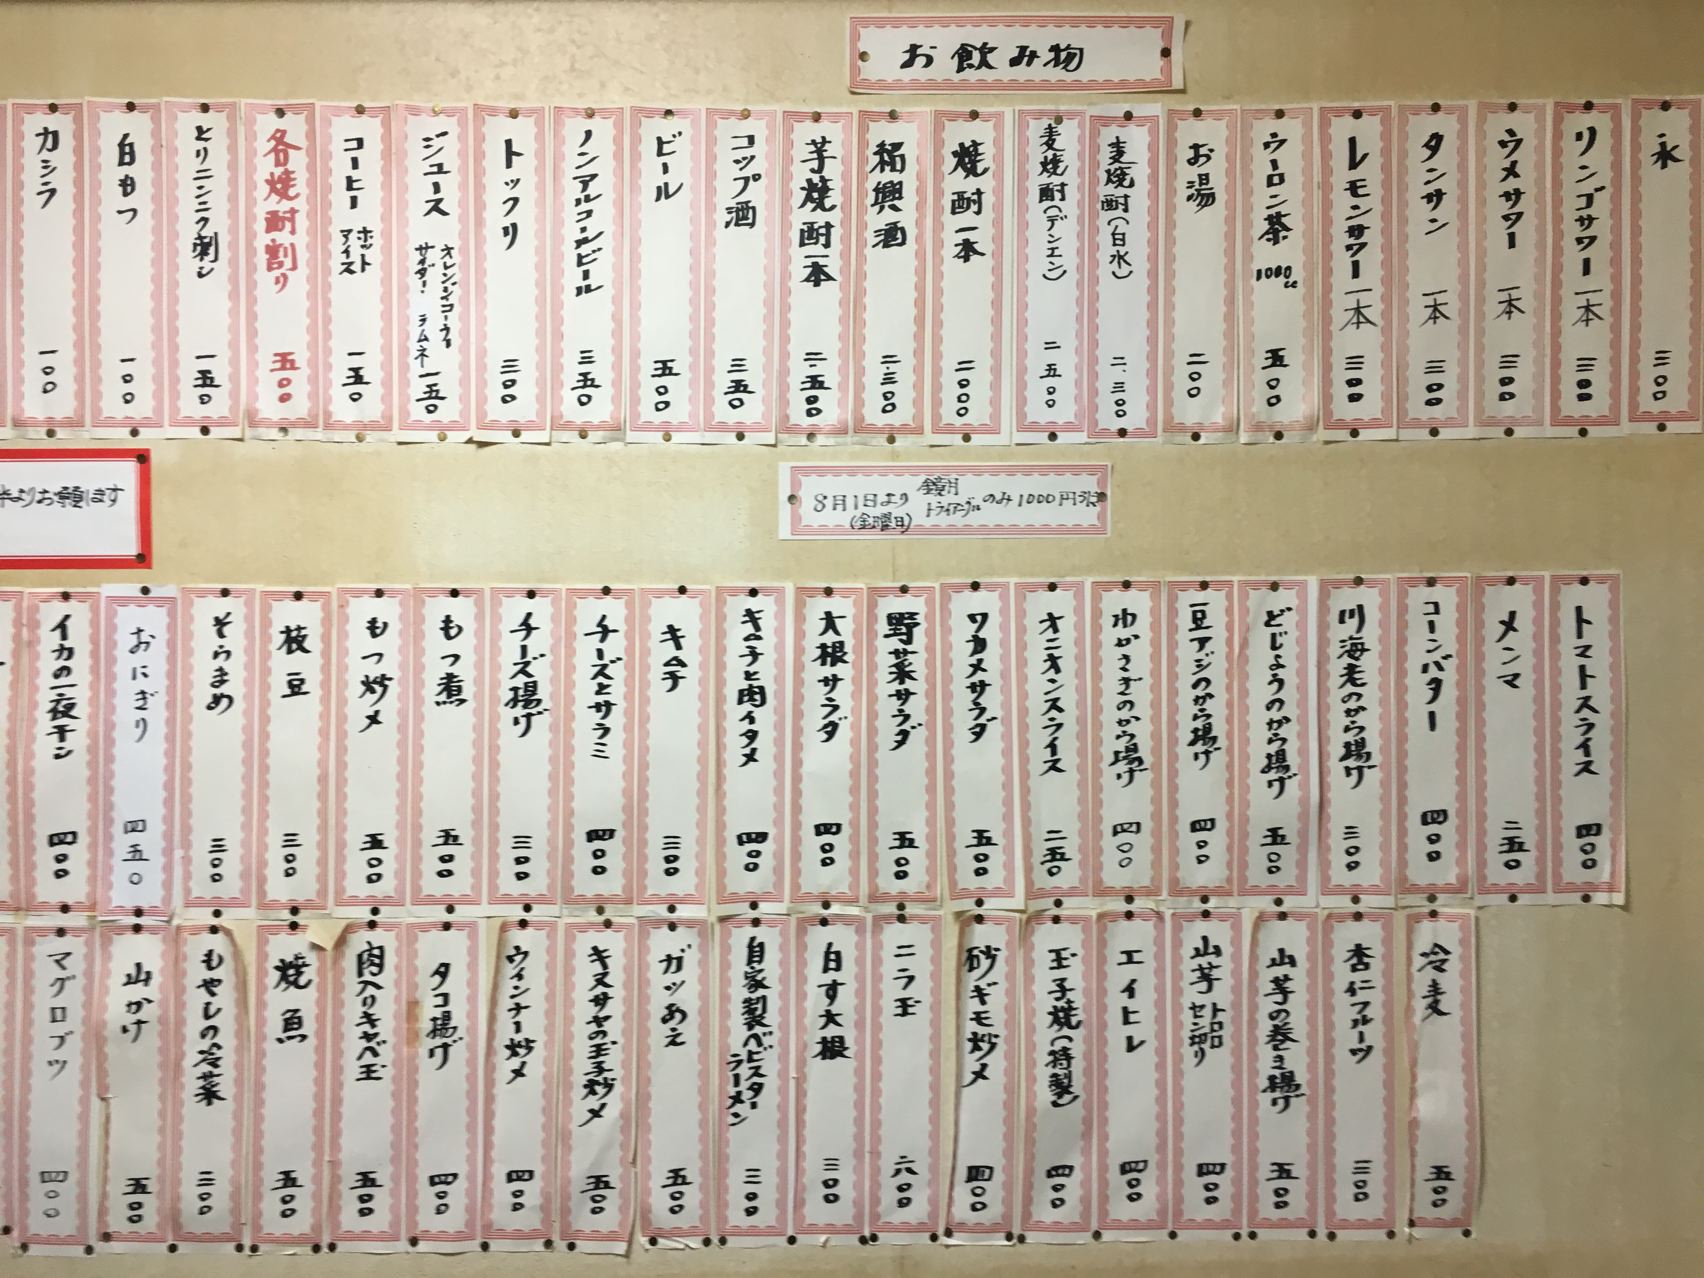 お飲み物
氷 三〇〇
リンゴサワー一本 三〇〇
ウメサワー 一本 三〇〇
タンサン 一本 三〇〇
レモンサワー一本 三〇〇
ウーロン茶 1000cc 五〇〇
お湯 二〇〇
麦焼酎(白水) 二、三〇〇
麦焼酎(デンエン) 二五〇〇
焼酎一本 二〇〇〇
紹興酒 二.三〇〇
芋焼酎一本 二.五〇〇
コップ酒 三五〇
ビール 五〇〇
ノンアルコールビール 三五〇
トックリ 三〇〇
ジュース オレンジ・コーラ・サイダー・ラムネ 一五〇
コーヒー ホット アイス 一五〇
各焼酎割り 五〇〇
とりニンニク刺し 一五〇
白もつ 一〇〇
カシラ 一〇〇
8月1日より(金曜日) 鏡月 トライアングルのみ1000円引き
半よりお願します
トマトスライス 四〇〇
メンマ 二五〇
コーンバター 四〇〇
川海老のから揚げ 三〇〇
どじょうのから揚げ 五〇〇
豆アジのから揚げ 四〇〇
わかさぎのから揚げ 四〇〇
オニオンスライス 二五〇
ワカメサラダ 五〇〇
野菜サラダ 五〇〇
大根サラダ 四〇〇
キムチと肉イタメ 四〇〇
キムチ 三〇〇
チーズとサラミ 四〇〇
チーズ揚げ 三〇〇
もつ煮 五〇〇
もつ炒メ 五〇〇
枝豆 三〇〇
そらまめ 三〇〇
おにぎり 四五〇
イカの一夜干シ 四〇〇
冷麦 五〇〇
杏仁フルーツ 三〇〇
山芋の巻き揚げ 五〇〇
山芋 トロロ センギり 四〇〇
エイヒレ 四〇〇
玉子焼(特製) 四〇〇
砂ギモ炒メ 四〇〇
ニラ玉 六〇〇
白す大根 三〇〇
自家製ベビスターラーメン 三〇〇
ガツあえ 五〇〇
キヌサヤの玉子炒メ 五〇〇
ウインナー炒メ 四〇〇
タコ揚げ 四〇〇
肉入りキャベ玉 五〇〇
焼魚 五〇〇
もやしの冷菜 三〇〇
山かけ 五〇〇
マグロブツ 四〇〇